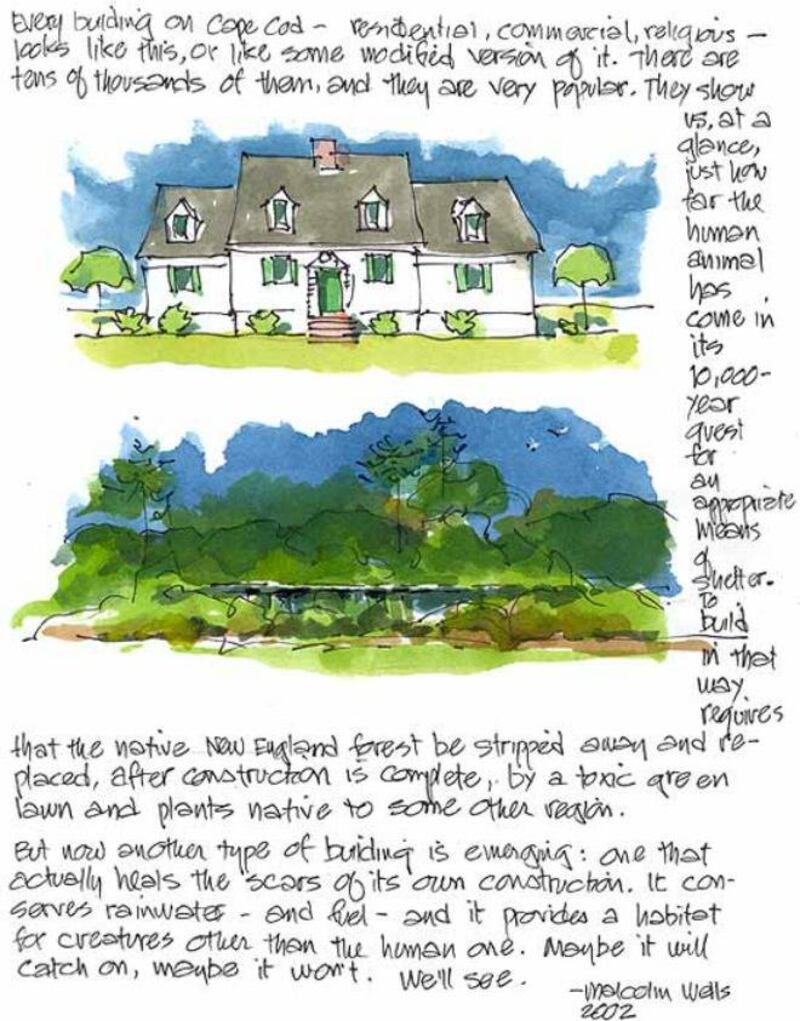 Every building on Cape Cod – residential, commercial, religious –
looks like this, or like some modified version of it. There are
tens of thousands of them, and they are very popular. They show
us, at a
glance,
just how
far the
human
animal
has
come in
its
10,000-
year
quest
for
an
appropriate
means
of
shelter.
To
build
in that
way
requires
that the native New England forest be stripped away and re-
placed, after construction is complete, by a toxic green
lawn and plants native to some other region.
But now another type of building is emerging: one that
actually heals the scars of its own construction. It con-
serves rainwater – and fuel – and it provides a habitat
for creatures other than the human one. Maybe it will
catch on, maybe it won't. We'll see.
–Malcolm Wells
2002